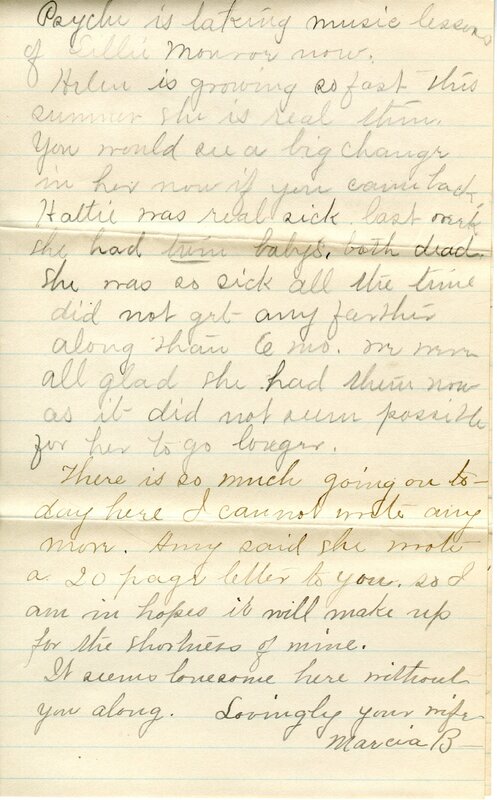 Psyche is taking music lessons
of Lillie Monroe now.
Helen is growing so fast this
summer she is real thin.
You would see a big change
in her now if you came back.
Hattie was real sick last week
she had twin babys, both dead.
She was so sick all the time
did not get any farther
along than 6 mo. we were
all glad she had them now
as it did not seem possible
for her to go longer.
There is so much going on to-
day here I cannot write any
more. Amy said she wrote
a 20 page letter to you. so I
am in hopes it will make up
for the shortness of mine.
It seems lonesome here without
you along. Lovingly your wife
Marcia B-